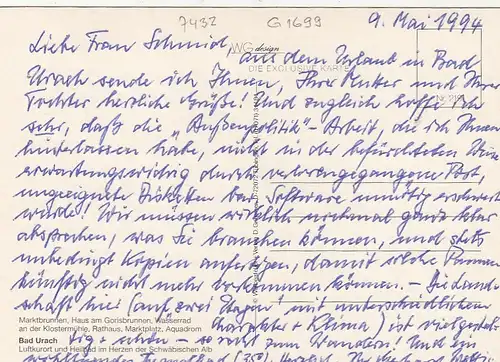 7432 G 1699
9. Mai 1994
Liebe Frau Schmid,
WG design
DIE EXCLUSIVE KARTE
aus dem Urlaub in Bad
Urach sende ich Ihnen, Ihrer Mutter und Ihrer
Tochter herzliche Grüße! Und zugleich hoffe ich
sehr, daß die „Außenpolitik"-Arbeit, die ich Ihnen
hinterlassen habe, nicht in der befürchteten Weise
erwartungswidrig durch verlorengegangene Post,
ungeeignete Disketten bzw. Software unnötig erschwert
wurde! Wir müssen wirklich nochmal ganz klar
absprechen, was Sie brauchen können, und stets
unbedingt Kopien anfertigen, damit solche Pannen
künftig nicht mehr vorkommen können. – Die Land-
schaft hier (auf „zwei Etagen" mit unterschiedlichem
Marktbrunnen, Haus am Gorisbrunnen, Wasserrad
an der Klostermühle, Rathaus, Marktplatz, Aquadrom
Charakter + Klima) ist vielgestal-
Bad Urach
tig + schön – so recht zum Wandern! Und im
Luftkurort und Heilbad im Herzen der Schwäbischen Alb